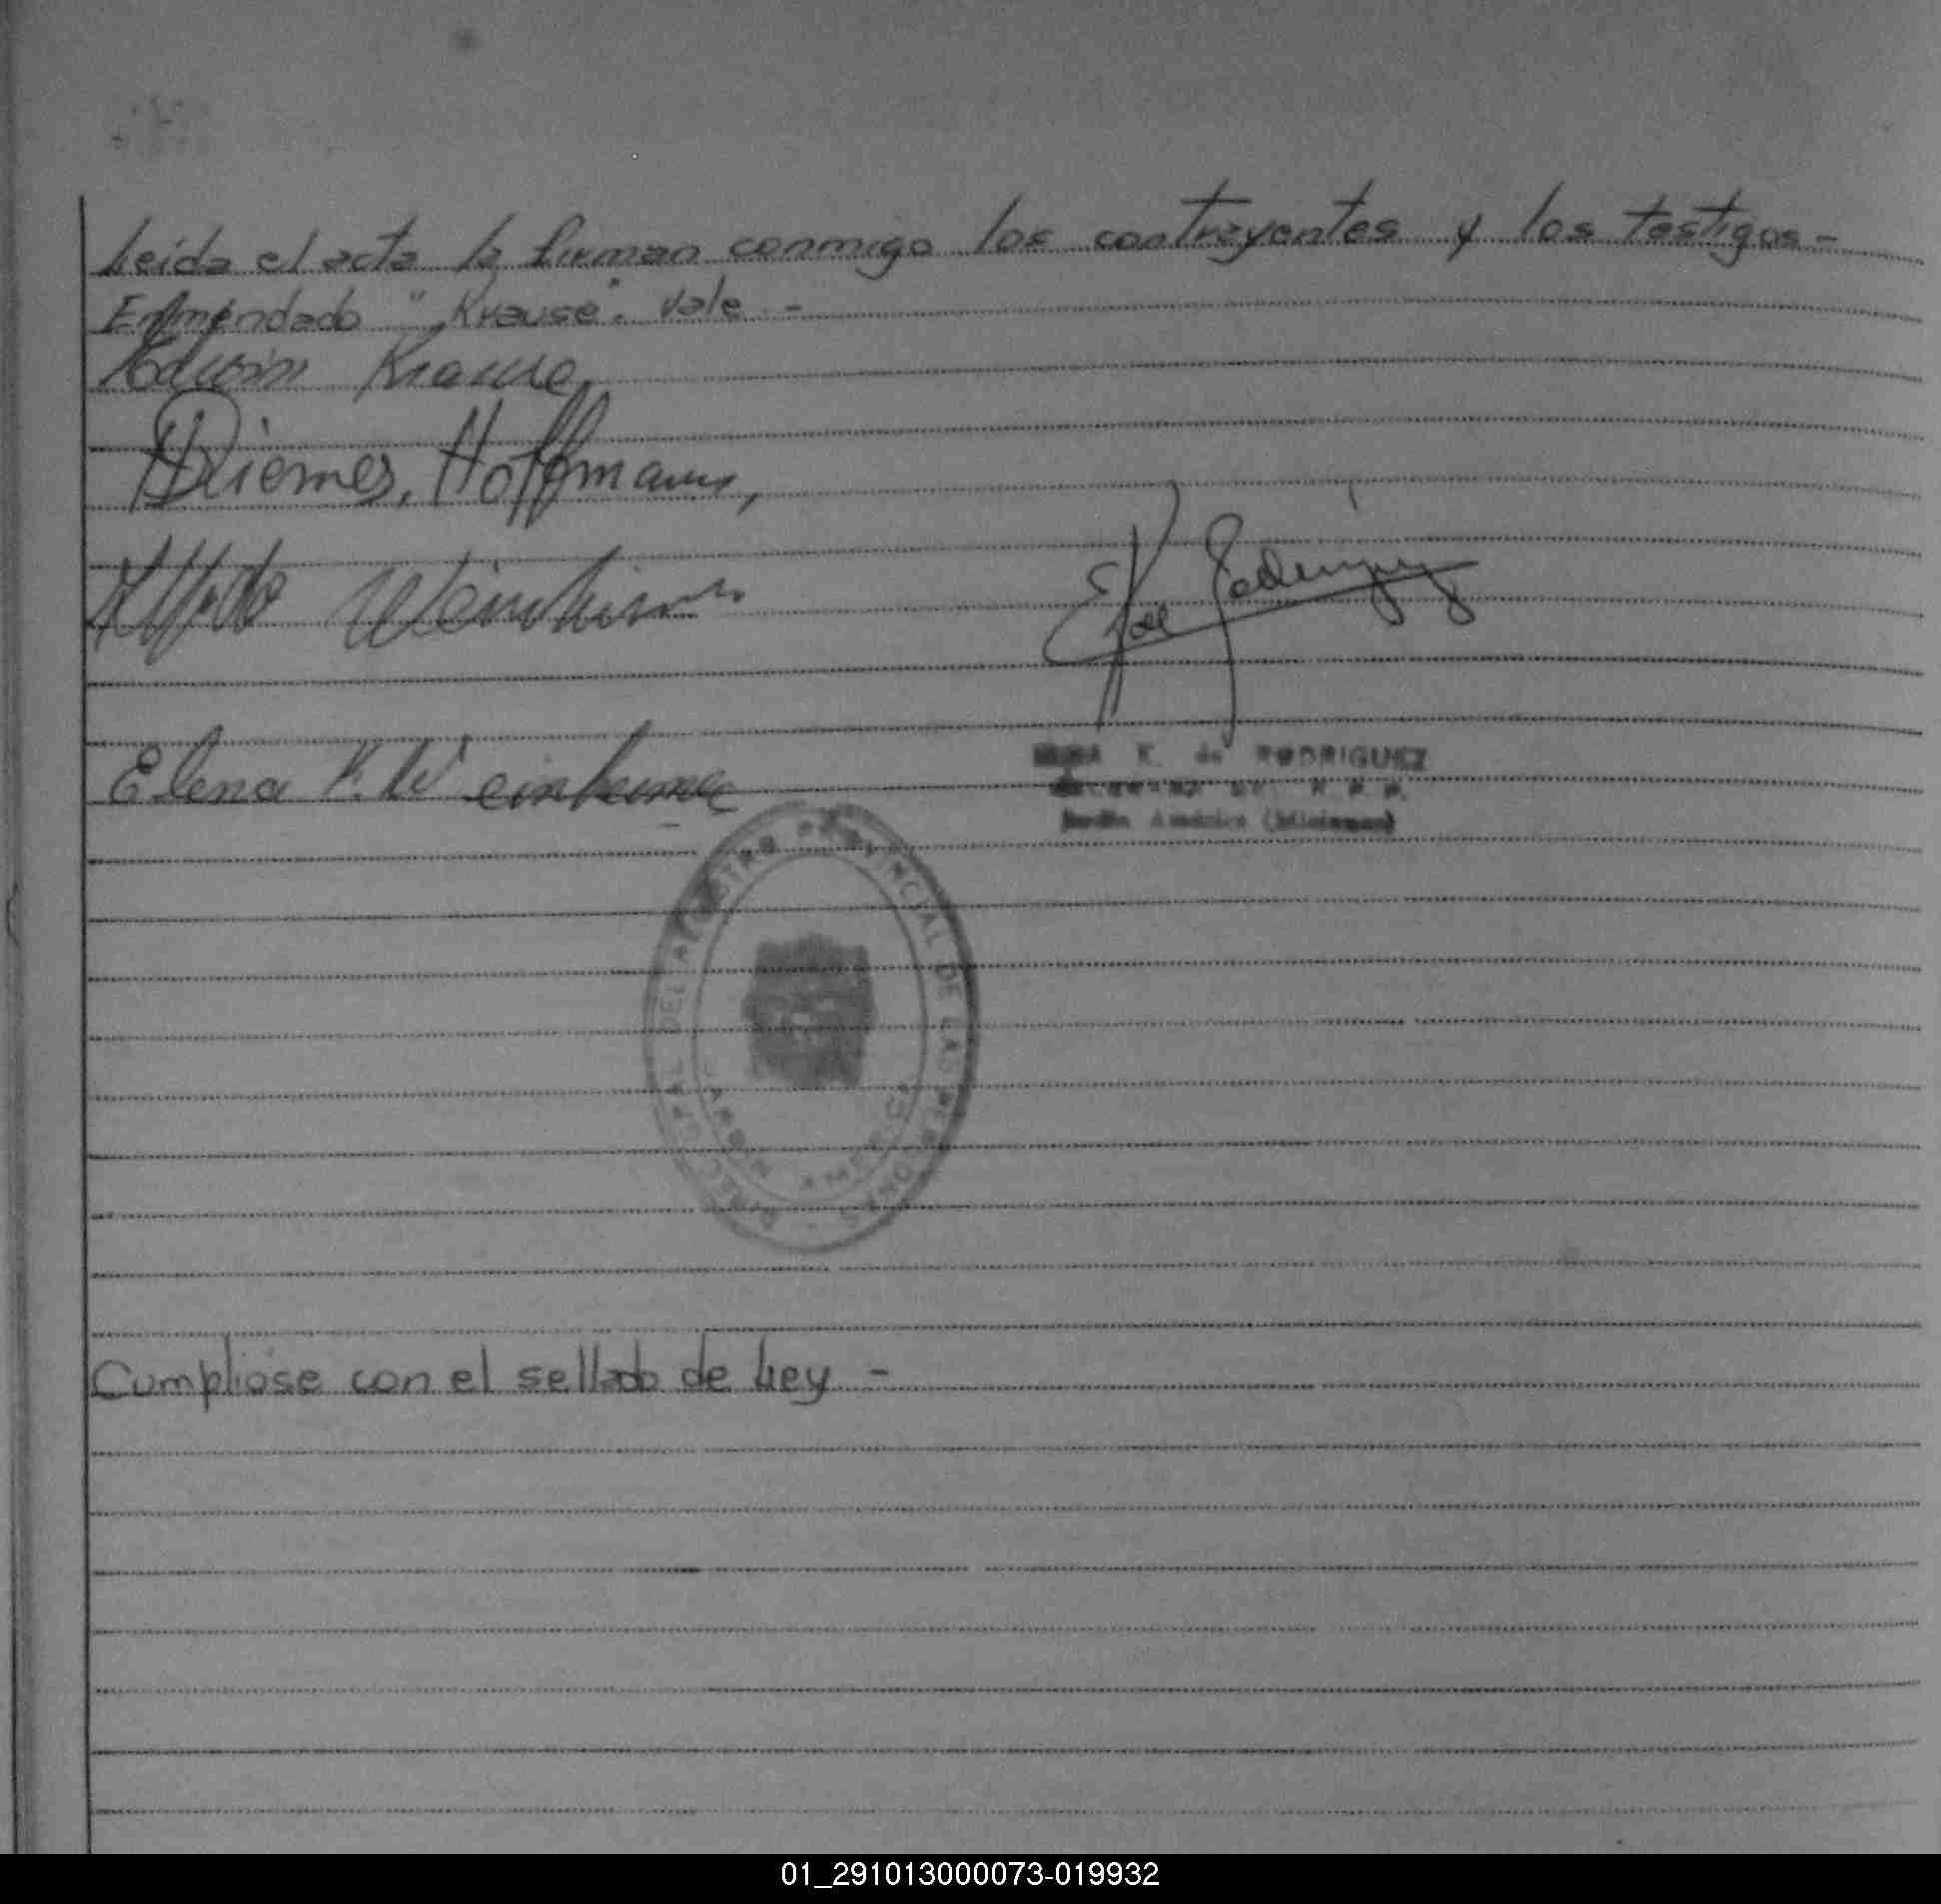 Leída el acta la firman conmigo los contrayentes y los testigos-
Enmendado "Krause". Vale -
Edwin Krause,
Driemer, Hoffmann,
Alfredo
Rodriguez
Elena K. W
K. de RODRIGUEZ
R. P. P.
América (Misiones)
DEL REGISTRO PROVINCIAL DE LAS PERSONAS
AMERICA
Cumpliose con el sellado de Ley -
01_291013000073-019932